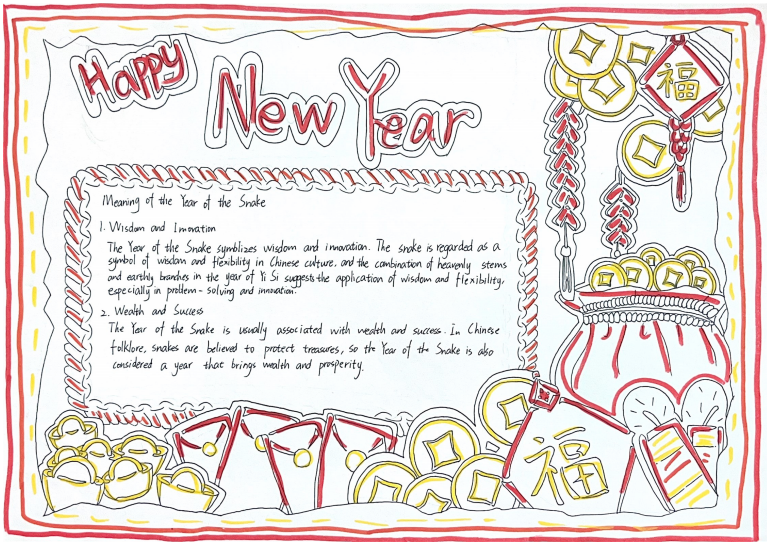 Happy
New Year
福
Meaning of the Year of the Snake
1. Wisdom and Innovation
The Year of the Snake symblizes wisdom and innovation. The snake is regarded as a
symbol of wisdom and flexibility in Chinese culture. and the combination of heavenly stems
and earthly branches in the year of Yi Si suggests the application of wisdom and flexibility,
especially in problem-solving and innovation.
2. Wealth and Success
The Year of the Snake is usually associated with wealth and success. In Chinese
folklore, snakes are believed to protect treasures, so the Year of the Snake is also
considered a year that brings wealth and prosperity.
福